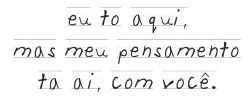 eu to aqui,
mas meu pensamento
ta ai, com você.